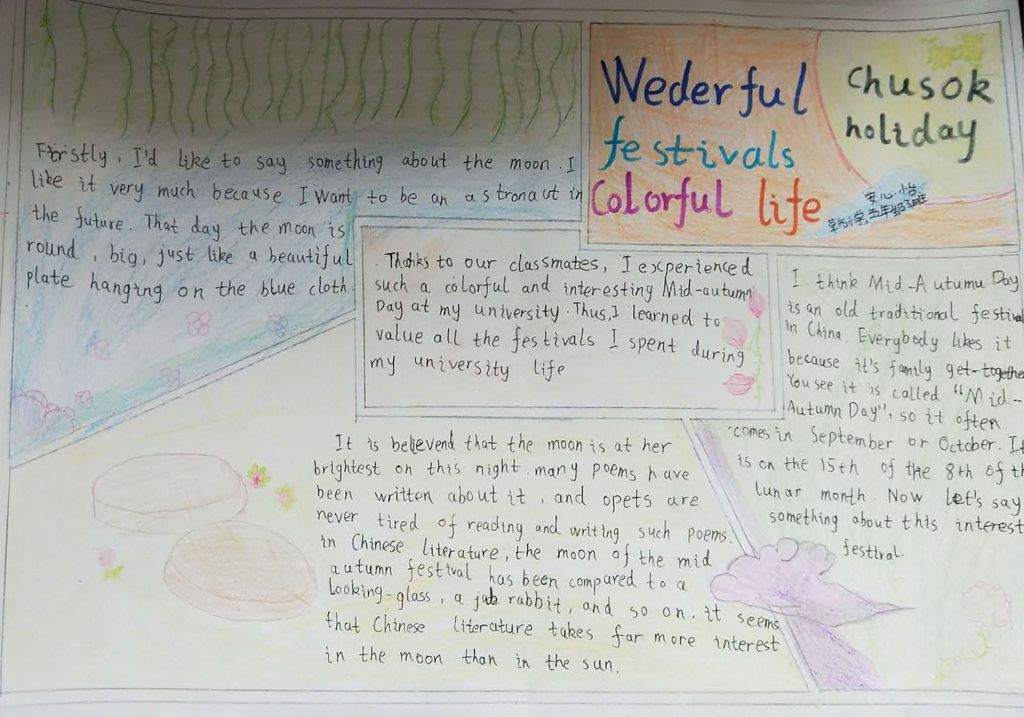 Wederful
festivals
Colorful life
Chusok
holiday
安心小怡
五年级3班
Firstly, I'd like to say something about the moon. I
like it very much because I want to be an astronaut in
the future. That day the moon is
round, big, just like a beautiful
plate hanging on the blue cloth.
Thanks to our classmates, I experienced
such a colorful and interesting Mid-autumn
Day at my university. Thus, I learned to
value all the festivals I spent during
my university life
I think Mid-Autumu Day
is an old traditional festival
in China. Everybody likes it
because it's family get-together
You see it is called "Mid-
Autumn Day", so it often
comes in September or October. It
is on the 15th of the 8th of th
lunar month. Now let's say
something about this interest
festival.
It is believend that the moon is at her
brightest on this night. many poems have
been written about it, and opets are
never tired of reading and writing such poems.
in Chinese literature, the moon of the mid
autumn festival has been compared to a
looking-glass, a jab rabbit, and so on. it seems
that Chinese literature takes far more interest
in the moon than in the sun.